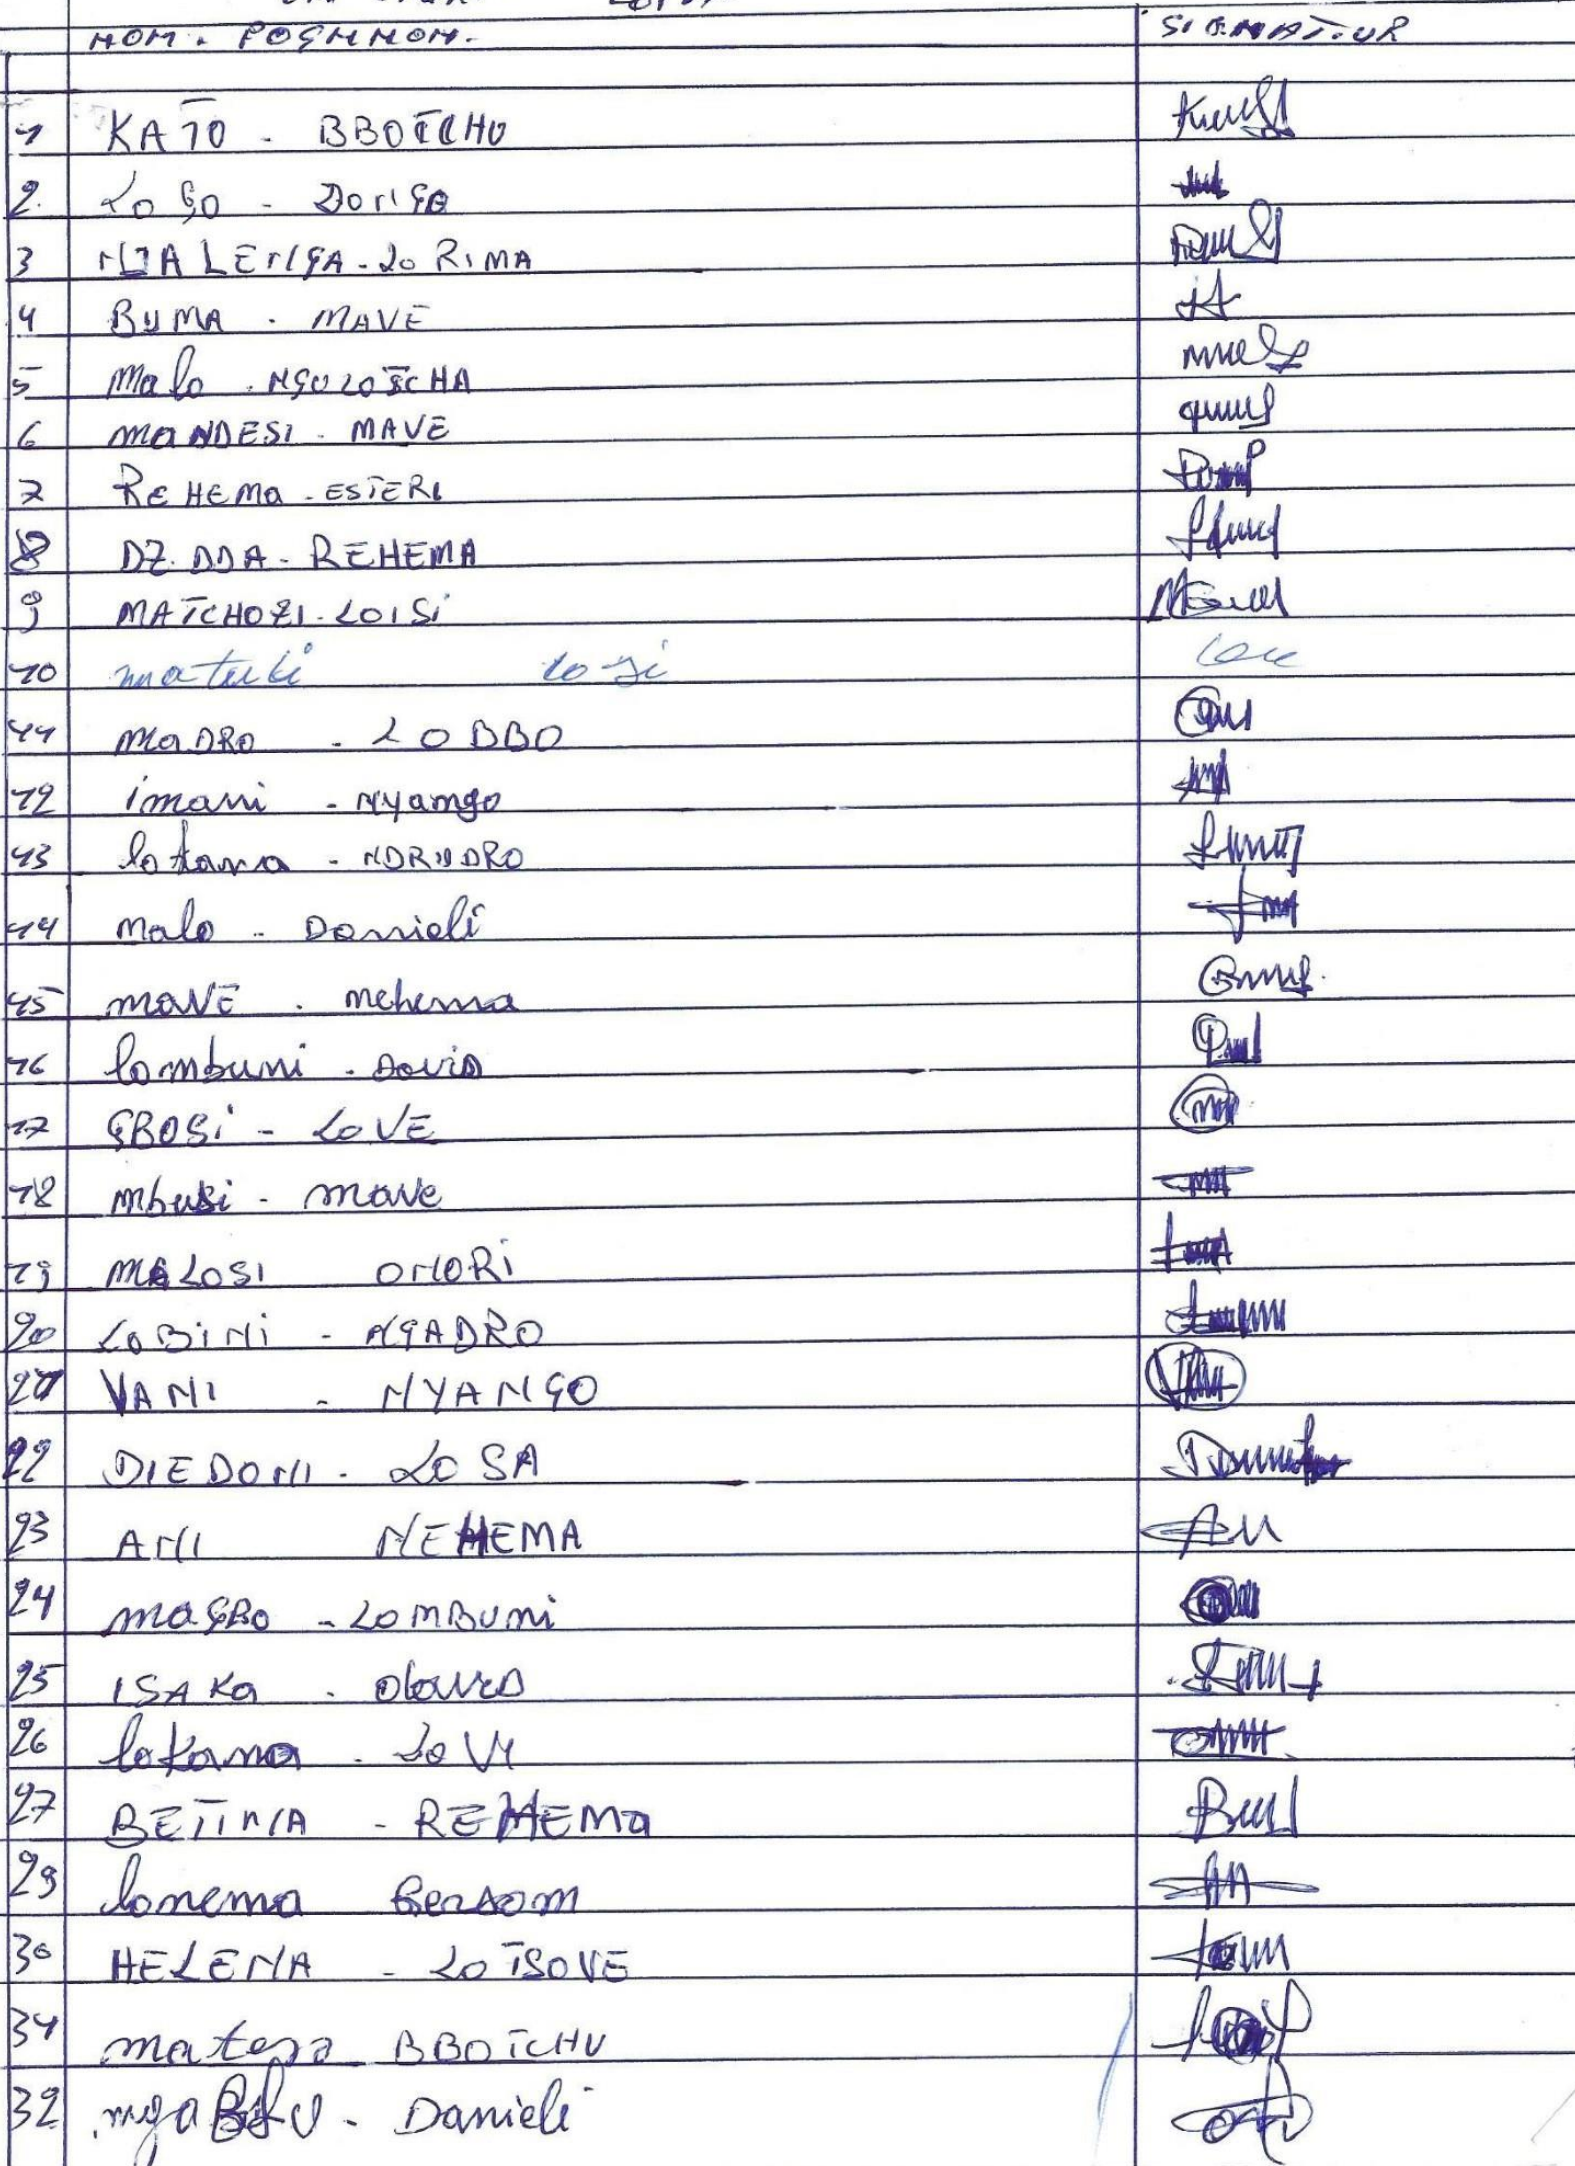 NOM. POSTNNOM. SIGNATUR
1 KATO - BBOTCHU
2. LOGO - DONGO
3 NJALENGA - LORIMA
4 BUMA . MAVE
5 Malo . NGULOTCHA
6 MANDESI . MAVE
7 REHEMA . ESTERI
8 DZ.DDA - REHEMA
9 MATCHOZI . LOISI
10 matuli losi
11 MADRO - LOBBO
12 imani - Nyango
13 lokana - NDRUDRO
14 Malo - Danieli
15 MAVE . nehema
16 lombuni - David
17 GBOSI - LOVE
18 mbusi - mave
19 MALOSI ONORI
20 LOBINI - NGADRO
21 VANI - NYANGO
22 DIEDONI - LOSA
23 ANI NEHEMA
24 MAGBO - LOMBUNI
25 ISAKA .
26 lokana . LOVI
27 BETINA - REHEMA
29 lonema Gersom
30 HELENA - LOTSOVE
31 mateso BBOTCHU
32 - Danieli